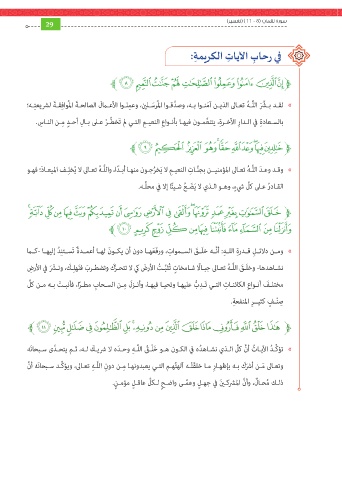 سورة لقمان (8 - 11) (تفسير)
29
في رحابِ الآياتِ الكريمة:
﴿ إِنَّ الَّذِينَ ءَامَنُوا وَعَمِلُوا الصَّالِحَاتِ لَهُمْ جَنَّاتُ النَّعِيمِ ٨ ﴾
لقد بشّر اللّه تعالى الذين آمنوا به، وصدَّقوا المرسَلين، وعمِلوا الأعمال الصالحة الموافِقة لشريعتِه؛
بالسعادةِ في الدار الآخرة، يتنعَّمون فيها بأنواع النعيم التي لم تخطُر على بال أحدٍ من الناس.
﴿ خَالِدِينَ فِيهَا وَعْدَ اللَّهِ حَقًّا وَهُوَ الْعَزِيزُ الْحَكِيمُ ٩ ﴾
وقد وعدَ اللّه تعالى المؤمنين بجنّات النعيم لا يَخرُجون منها أبدًا، واللّه تعالى لا يُخلِف الميعاد؛ فهو
القادرُ على كلّ شيءٍ، وهو الذي لا يَضَعُ شيئًا إلا في محلِّه.
﴿ خَلَقَ السَّمَاوَاتِ بِغَيْرِ عَمَدٍ تَرَوْنَهَا وَأَلْقَى فِي الْأَرْضِ رَوَاسِيَ أَن تَمِيدَ بِكُمْ وَبَثَّ فِيهَا مِن كُلِّ دَابَّةٍ
وَأَنزَلْنَا مِنَ السَّمَاءِ مَاءً فَأَنبَتْنَا فِيهَا مِن كُلِّ زَوْجٍ كَرِيمٍ ١٠ ﴾
ومن دلائل قدرةِ اللّه: أنّه خلَقَ السمواتِ، ورفَعَها دون أن يكونَ لها أعمدةٌ تَستنِدُ إليها -كما
نشاهدها-، وخلَقَ اللّه تعالى جبالًا شامخاتٍ تُثبِّتُ الأرضَ كي لا تتحرّكَ وتضطربَ فتَهلِكَ، ونشَر في الأرضِ
مختلفَ أنواع الكائنات التي تدِبُّ عليها وتحيا فيها، وأنزلَ من السحابِ مطرًا، فأنبتَ به من كلّ
صِنفٍ كثيرِ المنفعةِ.
﴿ هَٰذَا خَلْقُ اللَّهِ فَأَرُونِي مَاذَا خَلَقَ الَّذِينَ مِن دُونِهِ بَلِ الظَّالِمُونَ فِي ضَلَالٍ مُّبِينٍ ١١ ﴾
تؤكّدُ الآياتُ أنّ كلّ الذي نشاهدُه في الكون هو خَلْقُ اللّهِ وحدَه لا شريكَ له، ثم يتحدّى سبحانَه
وتعالى مَن أشرَك به بإظهارِ ما خلقَتْه آلهتُهم التي يعبدونها من دونِ اللّهِ تعالى، ويؤكّد سبحانَه أنّ
ذلك مُحالٌ، وأنّ المشركينَ في جهلٍ وعمًى واضحٍ لكلّ عاقلٍ مؤمنٍ.